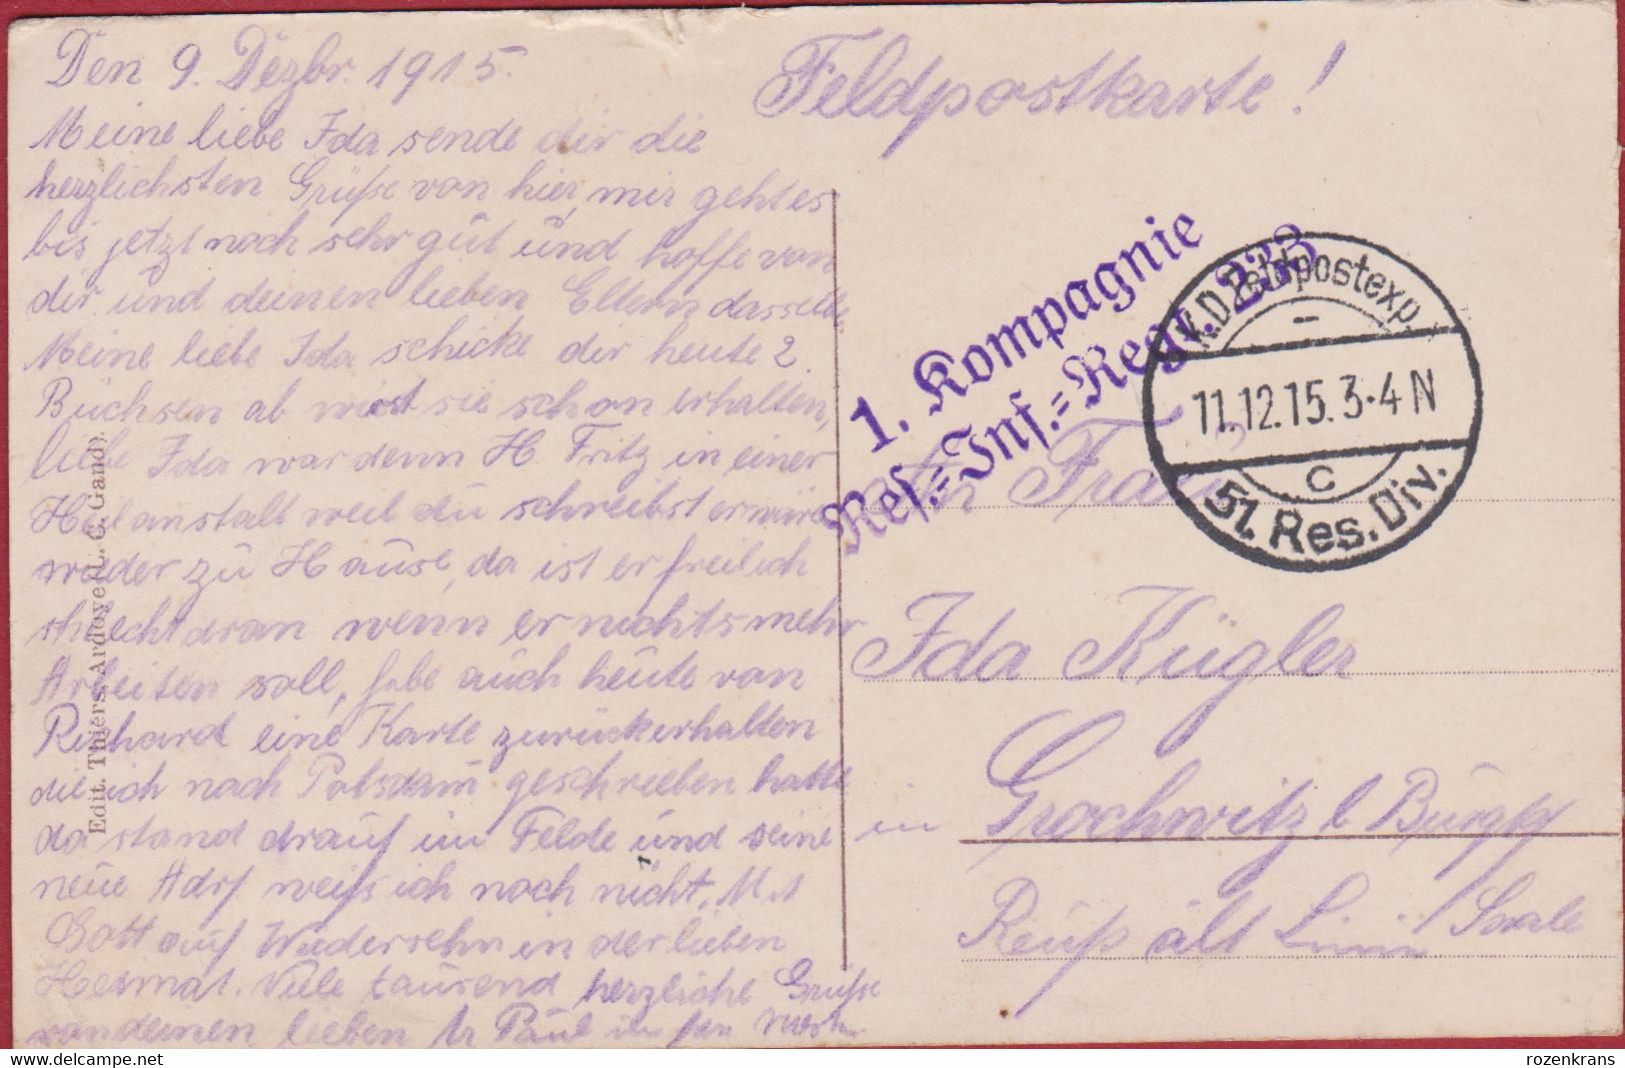 Den 9. Dezbr. 1915.
Meine liebe Ida sende dir die
herzlichsten Grüße von hier, mir geht es
bis jetzt noch sehr gut und hoffe von
dir und deinen lieben Eltern dasselbe.
Meine liebe Ida schicke dir heute 2
Büchsen ab wirst sie schon erhalten,
liebe Ida war denn H Fritz in einer
Heilanstalt weil du schreibst er wäre
wieder zu Hause, da ist er freilich
schlecht dran wenn er nichts mehr
Arbeiten soll, habe auch heute von
Richard eine Karte zurückerhalten
die ich nach Potsdam geschrieben hatte
da stand drauf im Felde und seine
neue Adrß weiß ich noch nicht. Mit
Gott auf Wiedersehn in der lieben
Heimat. Viele tausend herzliche Grüße
von deinen lieben Paul
Edit. Thiers-Ardoye (L. C. Gand).
Feldpostkarte!
1. Kompagnie
Res.=Inf.=Regt. 233
K.D. Feldpostexp.
11.12.15. 3-4 N
c
51. Res. Div.
Frau
Ida Kügler
in Grochwitz b Burgk
Reuß ält Linie Saale
rozenkrans